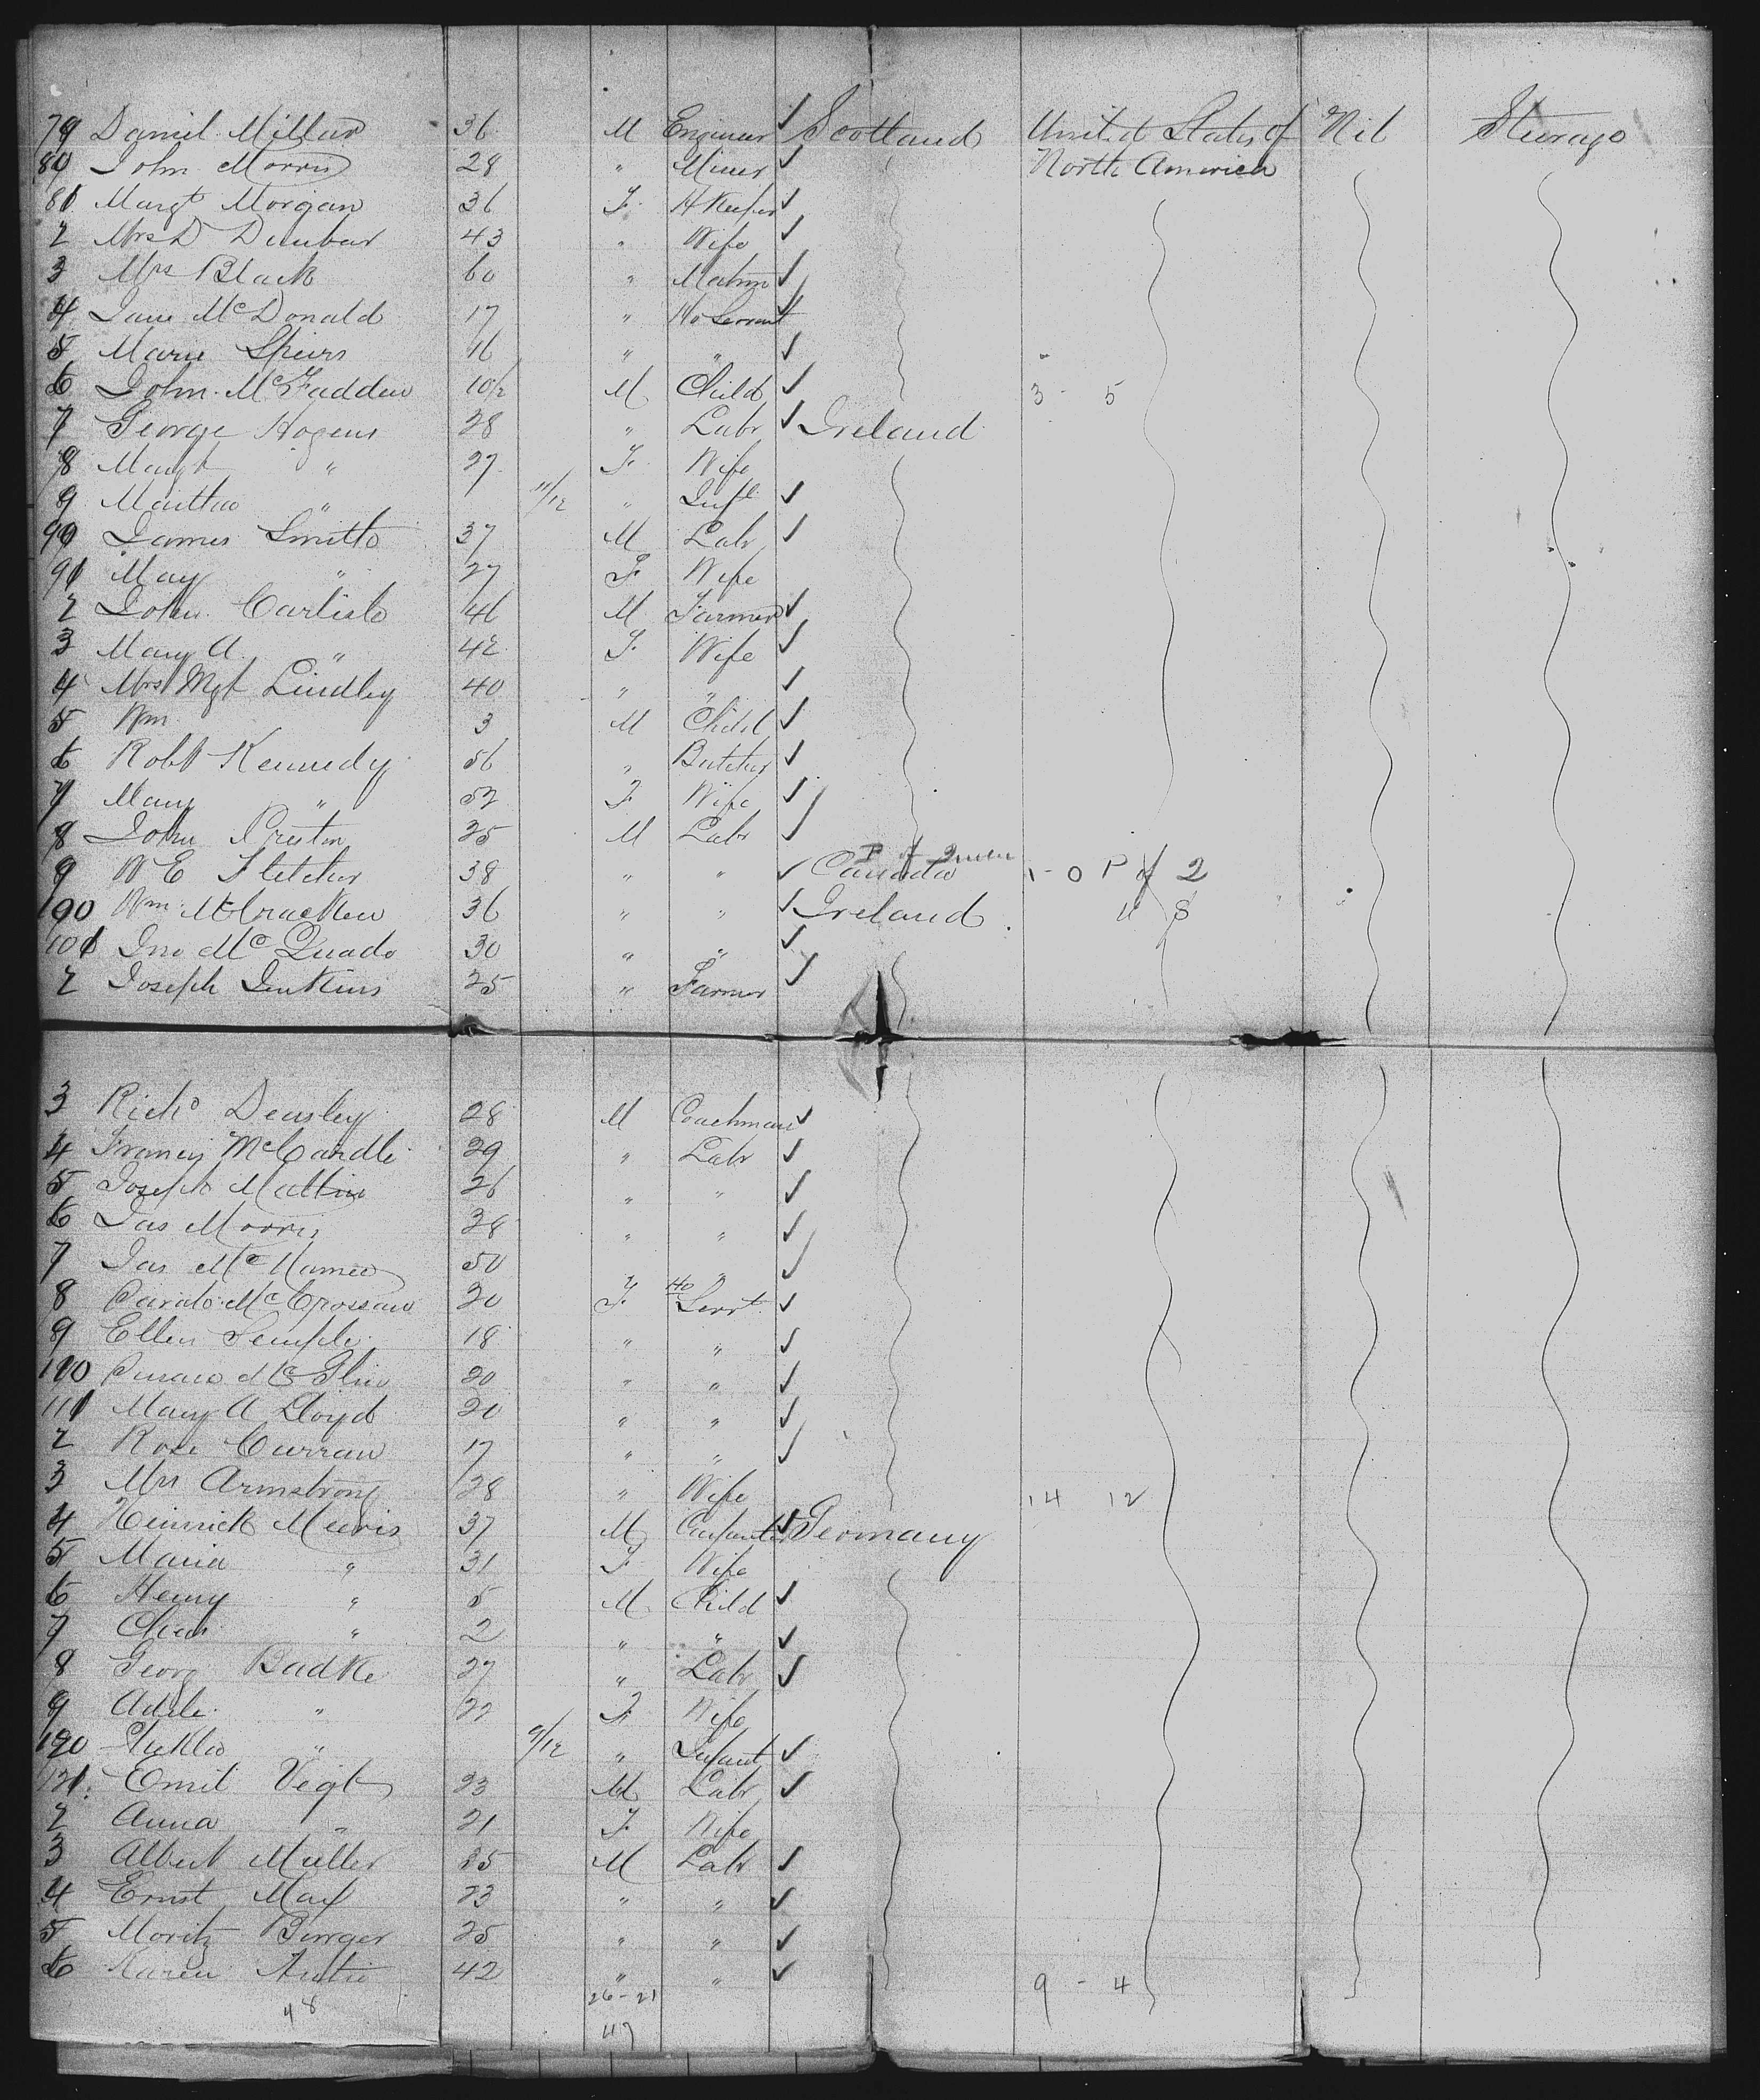 79 Daniel Millar 36 M Engineer ✓ Scotland United States of Nil Steerage
80 John Morris 28 " Miner ✓ North America
81 Margt Morgan 36 F H Keeper ✓
2 Mrs D Dunbar 43 " Wife ✓
3 Mrs Black 60 " Matron ✓
4 Jane McDonald 17 " Ho Servant ✓
5 Marie Speirs 16 " " ✓
6 John McFadden 10/2 M Child ✓ 3 - 5
7 George Hogens 28 " Labr ✓ Ireland
8 Margt " 27 F Wife
9 Martha " 11/12 " Inft ✓
90 James Smith 37 M Labr ✓
91 May " 27 F Wife
2 John Carlisle 46 M Farmer ✓
3 Mary A " 42 F Wife ✓
4 Mrs Mgt Lindley 40 " " ✓
5 Wm 3 M Child ✓
6 Robt Kennedy 56 " Butcher ✓
7 Mary " 52 F Wife ✓
8 John Preston 25 M Labr ✓
9 W E Fletcher 38 " " ✓ Canada 1 - 0 P of 2
100 Wm McCracken 36 " " ✓ Ireland 4 8
101 Jno McQuade 30 " " ✓
2 Joseph Jenkins 25 " Farmer ✓
3 Richd Deasley 28 M Coachman ✓
4 Francis McCardle 29 " Labr ✓
5 Joseph Mattin 26 " " ✓
6 Jas Morris 38 " " ✓
7 Jas McNamee 50 " ✓
8 McCrossan 20 F Ho Servt ✓
9 Ellen Semple 18 " " ✓
110 20 " " ✓
111 Mary A Lloyd 20 " " ✓
2 Rose Curran 17 " " ✓
3 Mrs Armstrong 28 " Wife 14 12
4 Heinrich Meuris 37 M Carpenter ✓ Germany
5 Maria " 31 F Wife
6 Henry " 5 M Child ✓
7 Chas " 2 " " ✓
8 Georg Badke 27 " Labr ✓
9 Adele " 22 F Wife
120 " 9/12 " Infant ✓
121 Emil Vegt 23 M Labr ✓
2 Anna " 21 F Wife
3 Albert Muller 25 M Labr ✓
4 Ernst May 23 " " ✓
5 Moritz Burger 25 " " ✓
6 Karen 42 " " ✓ 9 - 4
48 26-21
47